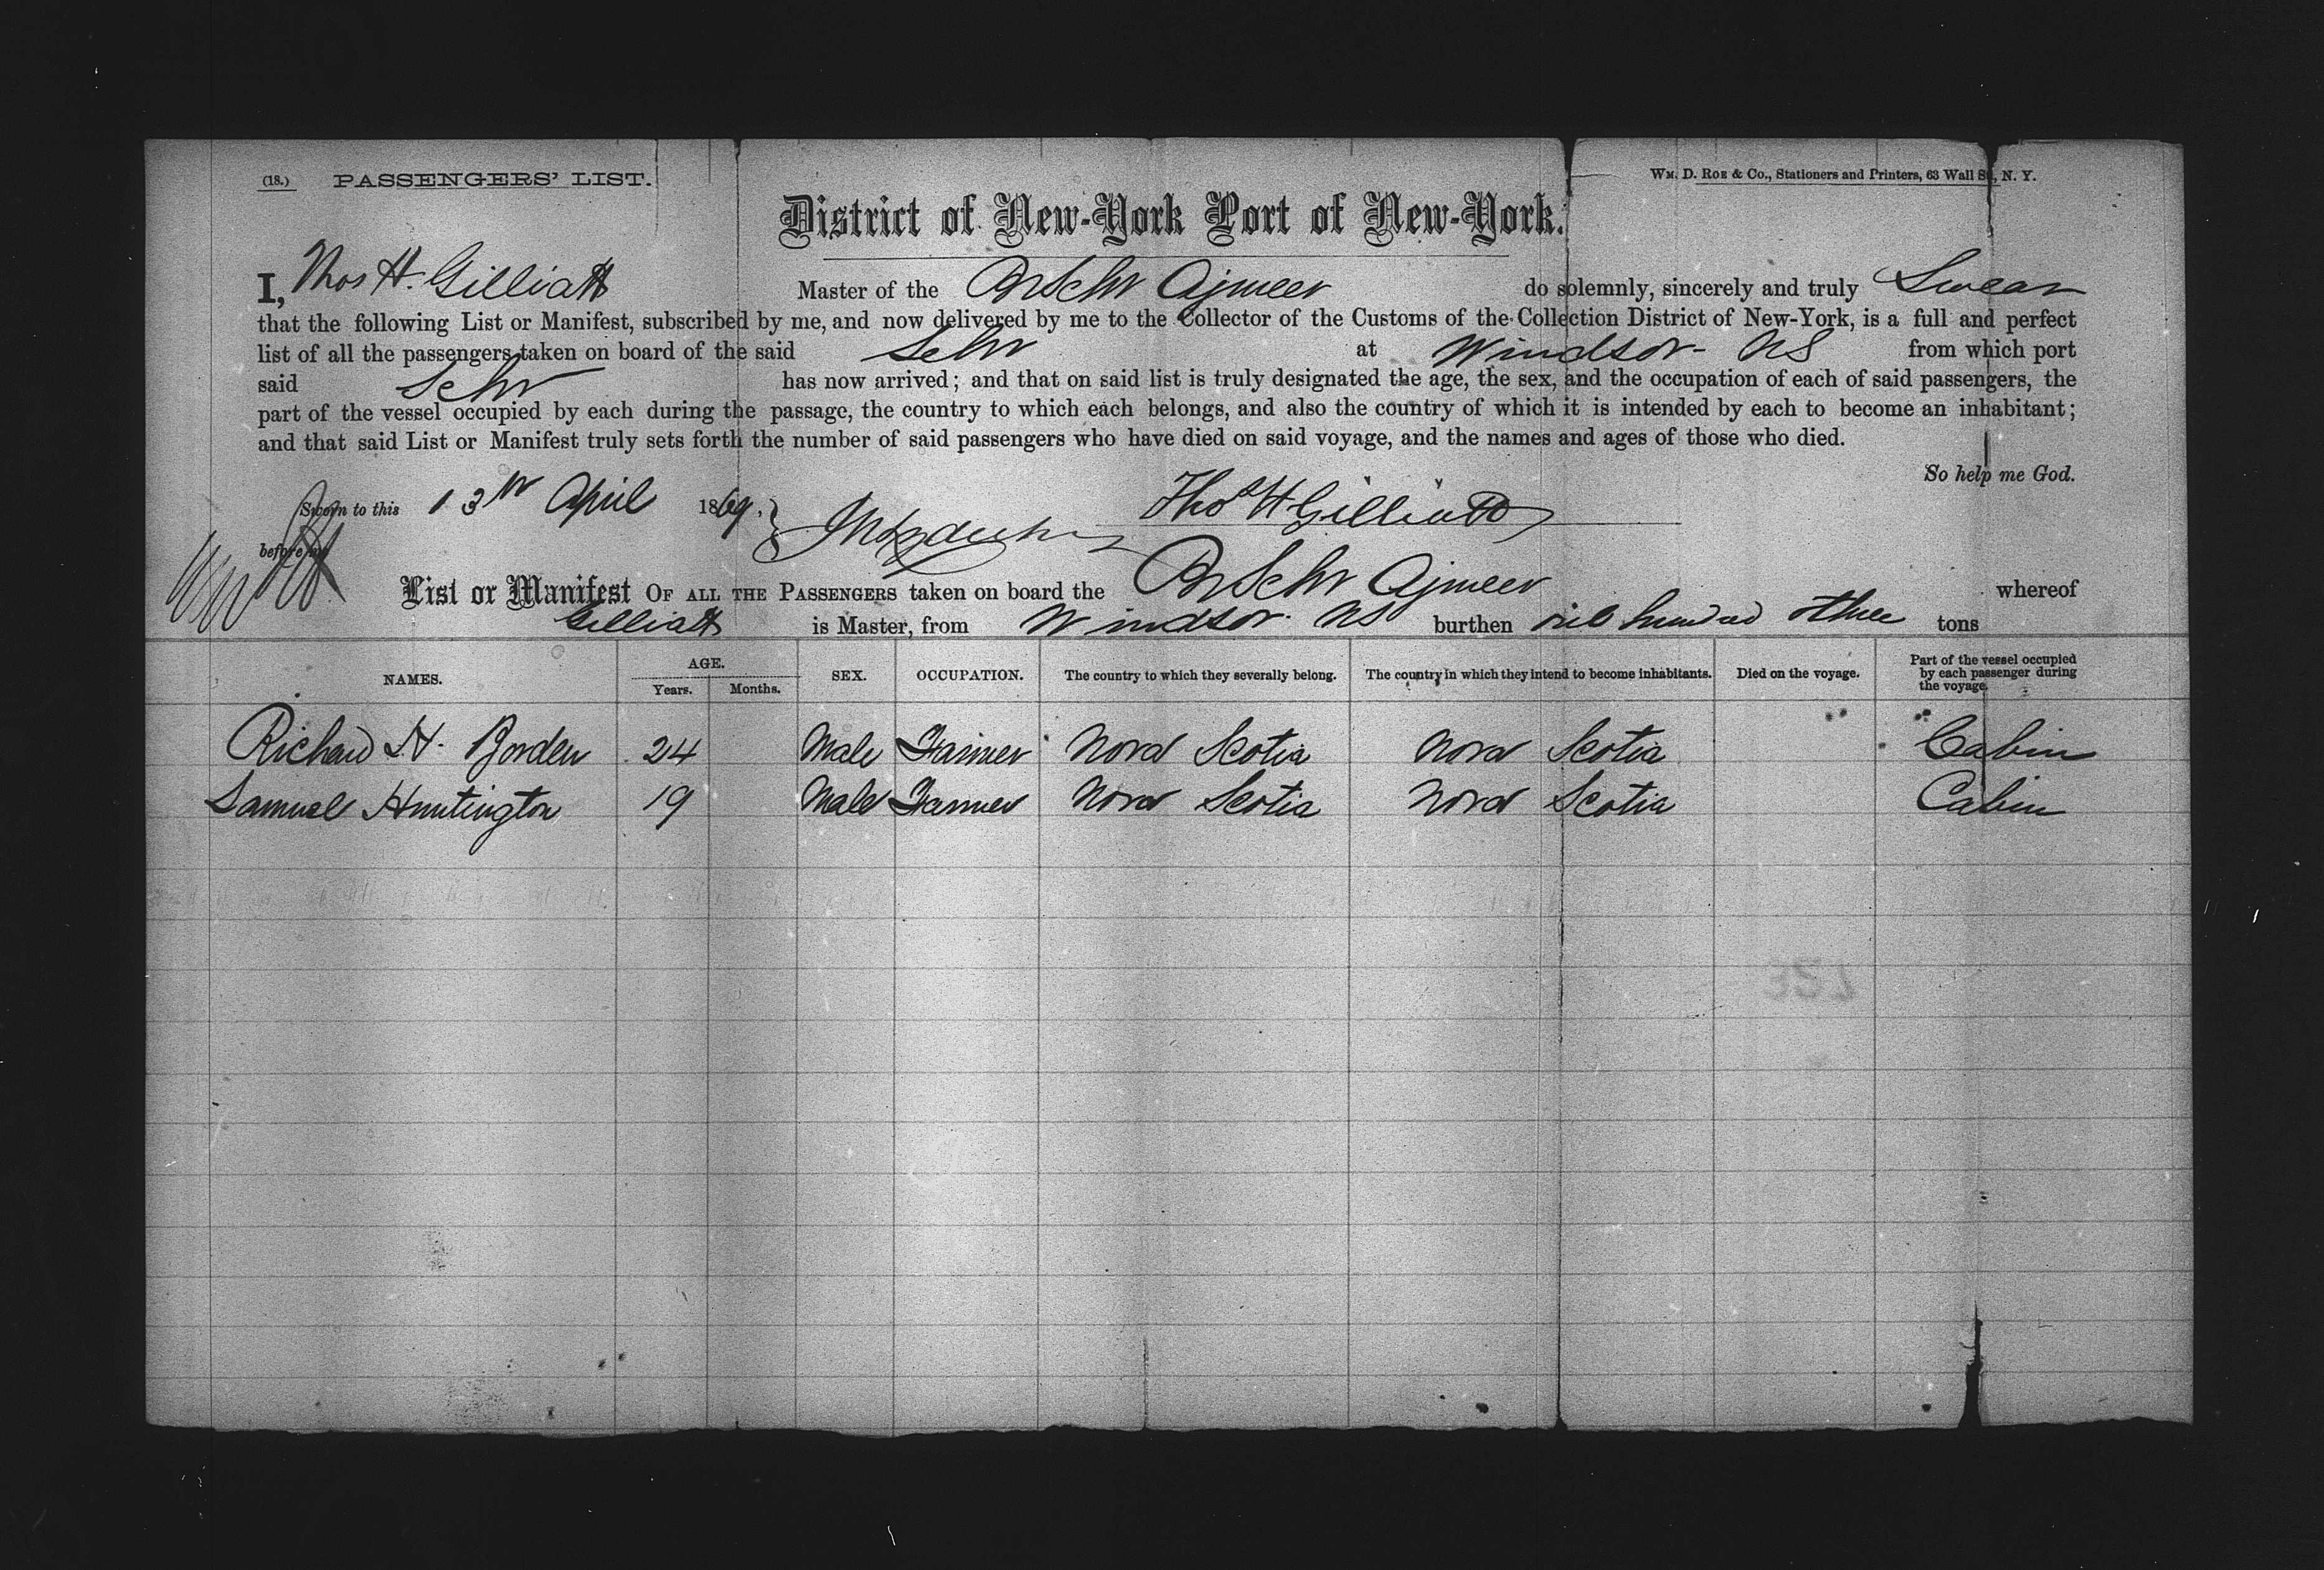 (18.) PASSENGERS' LIST. WM. D. ROE & Co., Stationers and Printers, 63 Wall St., N. Y.
District of New-York Port of New-York.
I, Thos H. Gilliatt Master of the Br Schr Ajmeer do solemnly, sincerely and truly Swear
that the following List or Manifest, subscribed by me, and now delivered by me to the Collector of the Customs of the Collection District of New-York, is a full and perfect
list of all the passengers taken on board of the said Schr at Windsor NS from which port
said Schr has now arrived; and that on said list is truly designated the age, the sex, and the occupation of each of said passengers, the
part of the vessel occupied by each during the passage, the country to which each belongs, and also the country of which it is intended by each to become an inhabitant;
and that said List or Manifest truly sets forth the number of said passengers who have died on said voyage, and the names and ages of those who died.
So help me God.
Sworn to this 13th April 1869, Thos H Gilliatt
before me
List or Manifest OF ALL THE PASSENGERS taken on board the Br Schr Ajmeer whereof
Gilliatt is Master, from Windsor NS burthen one hundred & three tons
NAMES. AGE. Years. Months. SEX. OCCUPATION. The country to which they severally belong. The country in which they intend to become inhabitants. Died on the voyage. Part of the vessel occupied by each passenger during the voyage.
Richard H. Borden 24 Male Farmer Nova Scotia Nova Scotia Cabin
Samuel Huntington 19 Male Farmer Nova Scotia Nova Scotia Cabin